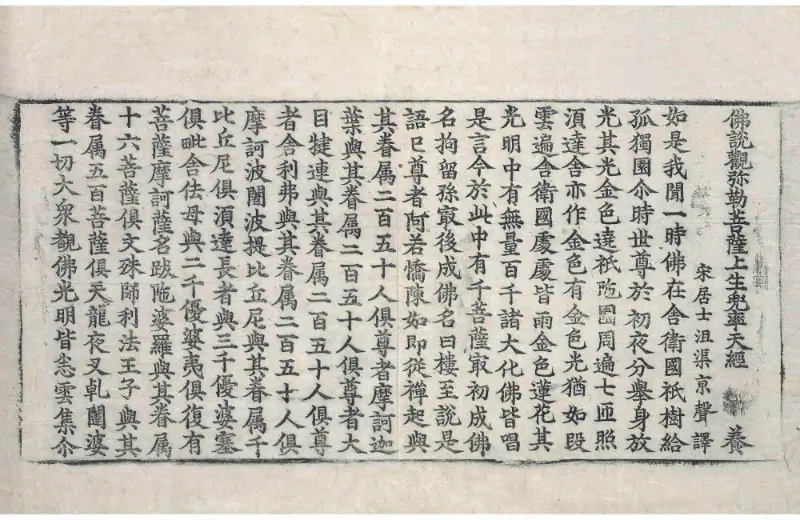 佛說觀弥勒菩薩上生兜率天經 養
宋居士沮渠京聲譯
如是我聞一時佛在舍衛國祇樹給
孤獨園尒時世尊於初夜分舉身放
光其光金色遶祇陁園周遍七匝照
湏達舍亦作金色有金色光猶如段
雲遍舍衛國處處皆雨金色蓮花其
光明中有無量百千諸大化佛皆唱
是言今於此中有千菩薩㝡初成佛
名拘留孫㝡後成佛名曰樓至說是
語已尊者阿若憍陳如即從禪起與
其眷属二百五十人俱尊者摩訶迦
葉與其眷属二百五十人俱尊者大
目揵連與其眷属二百五十人俱尊
者舍利弗與其眷属二百五十人俱
摩訶波闍波提比丘尼與其眷属千
比丘尼俱湏達長者與三千優婆塞
俱毗舍佉母與二千優婆夷俱復有
菩薩摩訶薩名跋陁婆羅與其眷属
十六菩薩俱文殊師利法王子與其
眷属五百菩薩俱天龍夜叉乹闥婆
等一切大衆覩佛光明皆悉雲集尒